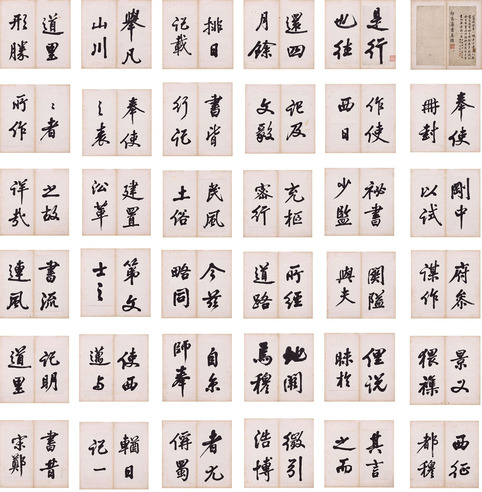 是行
也往
還四
月餘
排日
記載
舉凡
山川
道里
形勝
奉使
冊封
作使
西日
記及
文毅
書皆
行記
奉使
者
所作
剛中
以試
祕書
少監
充樞
密行
民風
土俗
建置
沿革
之故
詳哉
府參
謀作
關隘
與夫
所經
道路
今茲
略同
第文
士之
書流
連風
猥襍
俚說
昧於
自余
師奉
使西
邁與
記明
道里
西征
都穆
其言
之而
徵引
浩博
者尤
蜀
輶日
記一
書昔
宋鄭